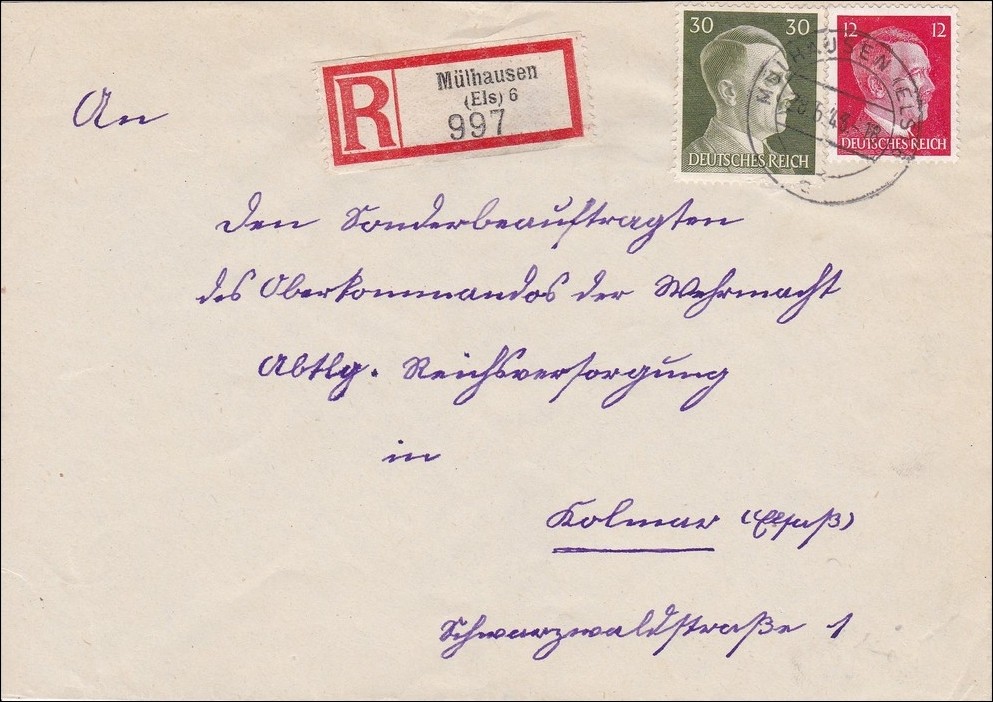 30 30
12 12
DEUTSCHES REICH
DEUTSCHES REICH
MÜLHAUSEN (ELS)
R
Mülhausen
(Els) 6
997
An
den Sonderbeauftragten
des Oberkommandos der Wehrmacht
Abtlg. Reichsversorgung
in
Kolmar (Elsaß)
Schwarzwaldstraße 1